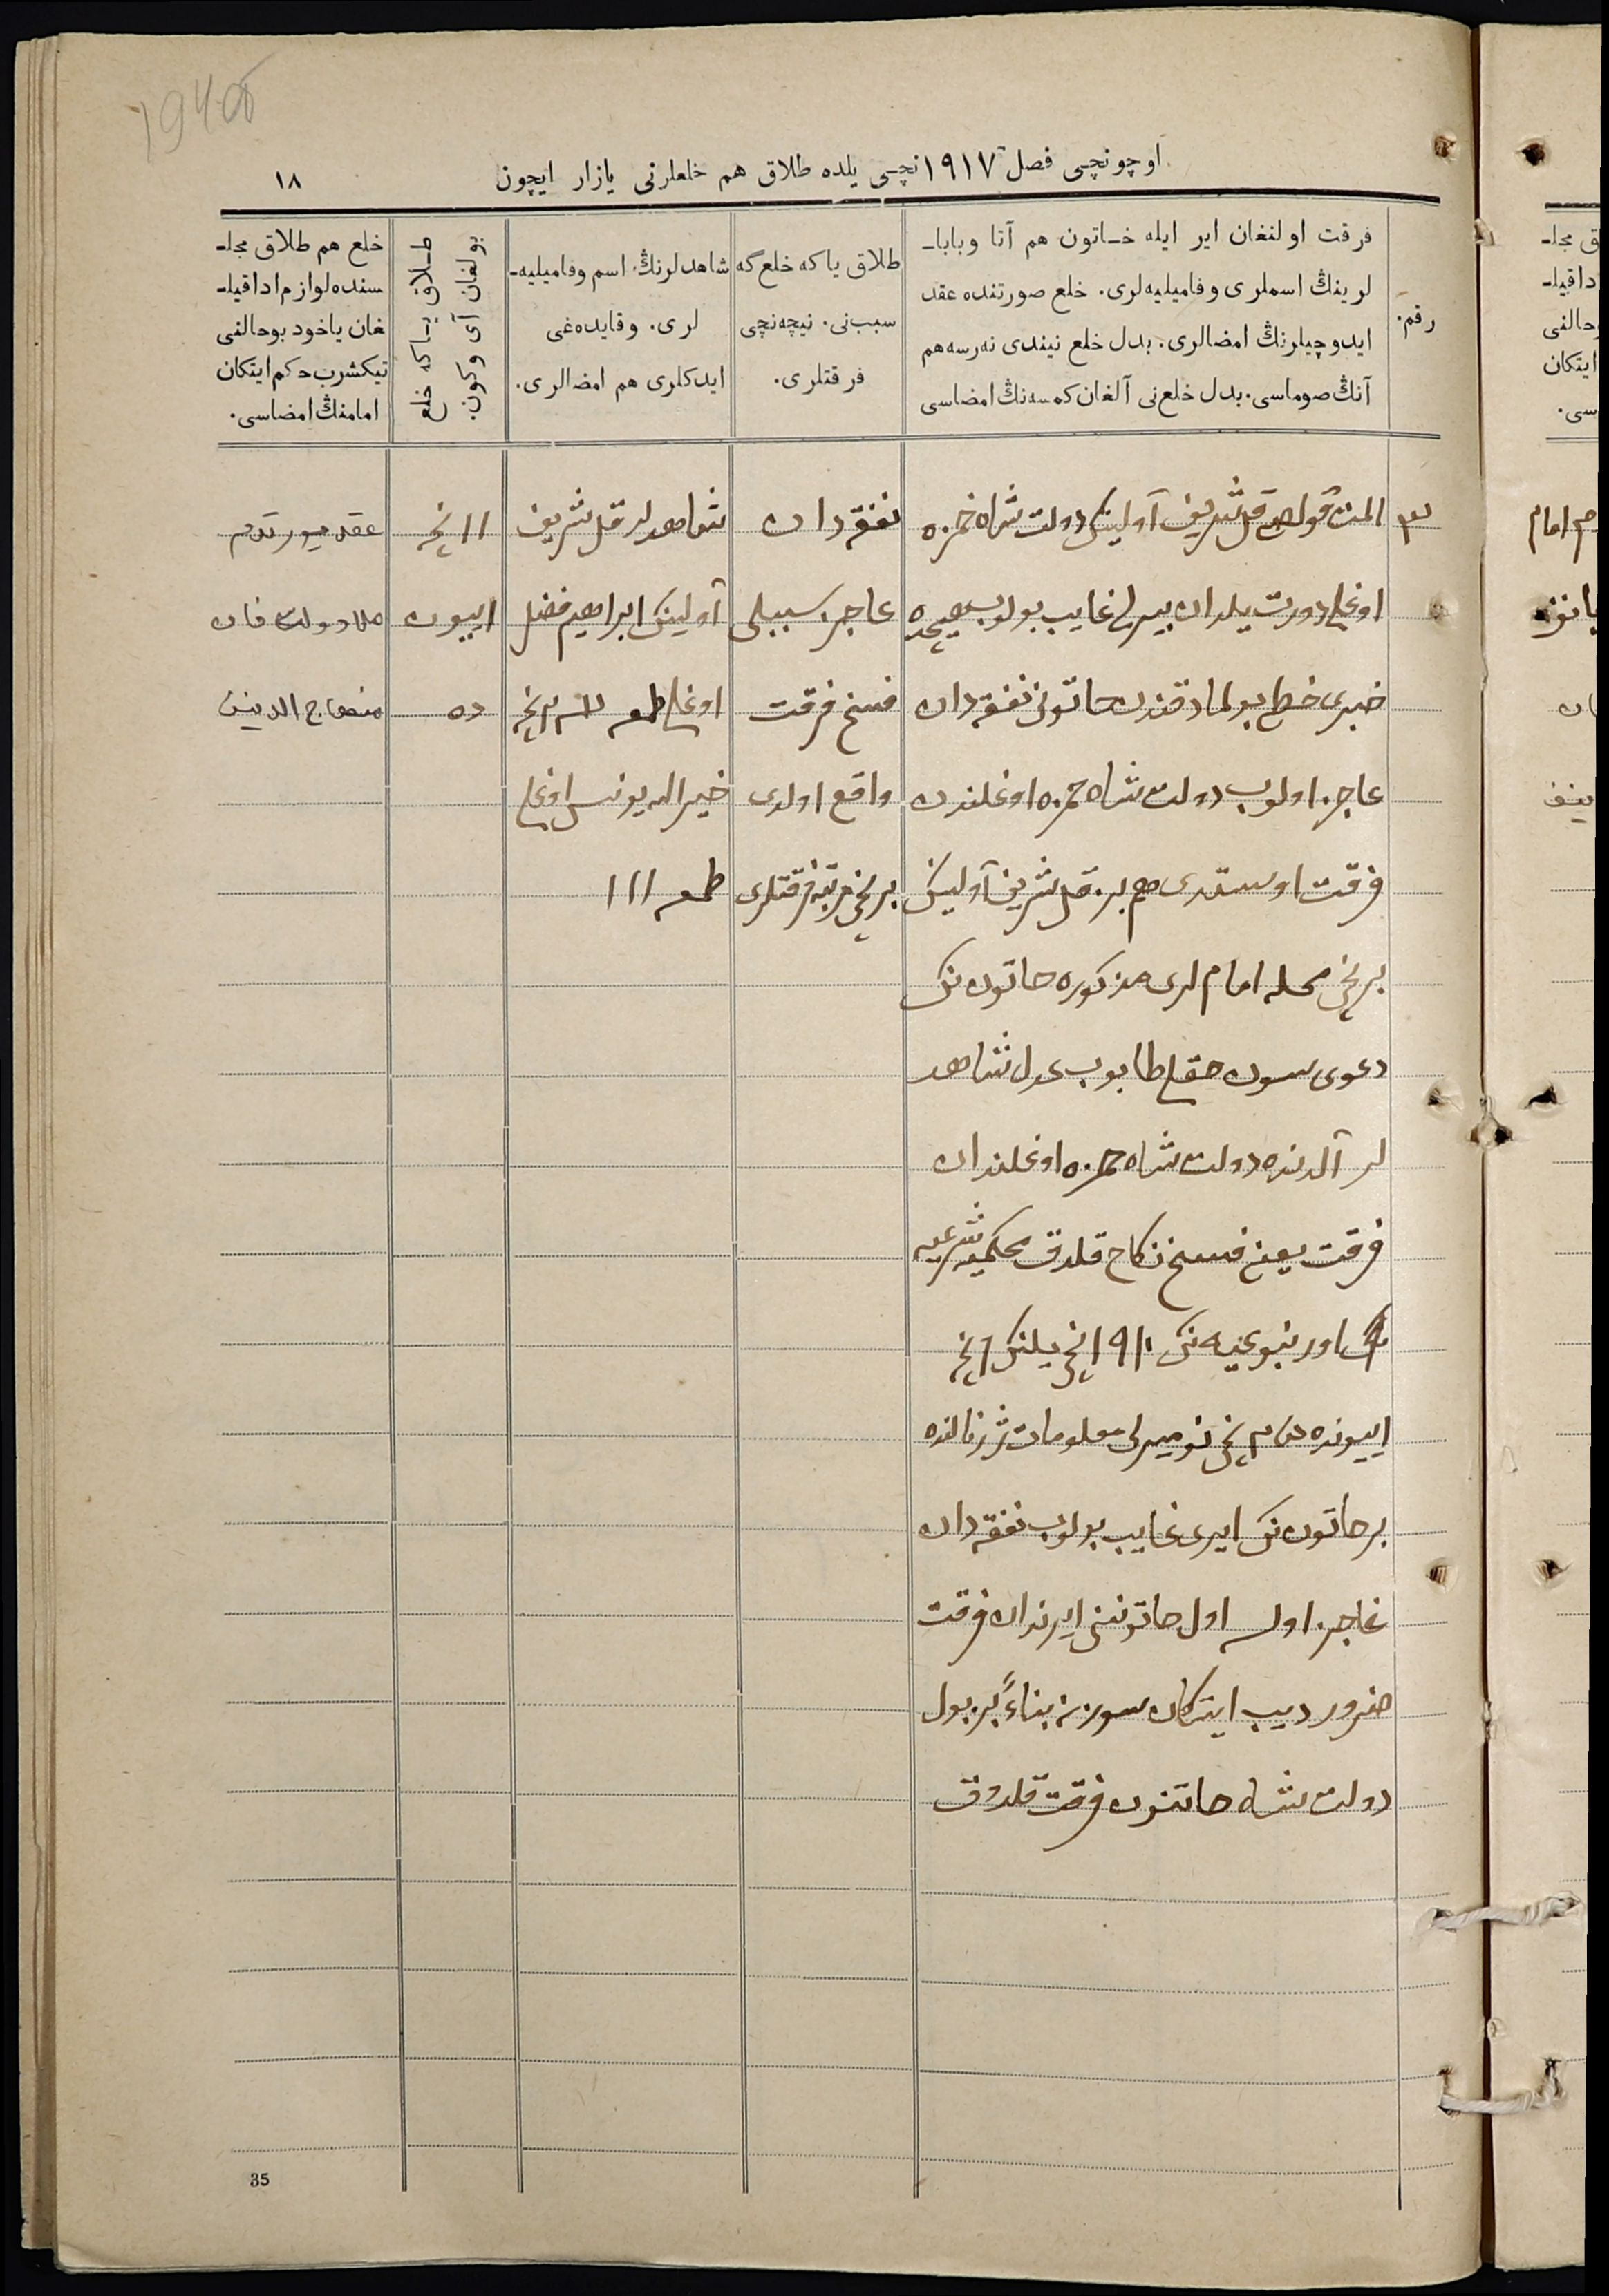 اوچونچی فصل ۱۹۱۷نچی یلده طلاق هم خلعلرنی یازار ایچون
۱۸
رقم.
فرقت اولنغان ایر ایله خاتون هم آتا وبابا-
لرینڭ اسملری وفامیلیه‌لری. خلع صورتنده عقد
ایدوچیلرنڭ امضالری. بدل خلع نیندی نه‌رسه هم
آنڭ صوماسی. بدل خلع‌نی آلغان کمسه‌نڭ امضاسی
طلاق یاکه خلع گه
سبب‌نی. نیچه‌نچی
فرقتلری.
شاهدلرنڭ اسم وفامیلیه-
لری. وقایده‌غی
ایدکلری هم امضالری.
طلاق یاکه خلع
بولغان آی وکون.
خلع هم طلاق مجلـ
سنده لوازم اداقیلـ
غان یاخود بوحالنی
تیکشرب حکم ایتکان
امامنڭ امضاسی.
۳
قل شریف آولینڭ دولت شاه حمزه
اوغلی دورت یلدان بیرلی غایب بولوب
خبری خطی بولمادقندن خاتونی نفقه دان
عاجز اولوب دولت شاه حمزه اوغلندن
فرقت اوستدی هم بز قل شریف آولینڭ
برنچی محله امام لری مذکوره خاتون نڭ
دعوی سون حقلی طابوب عدل شاهد
لر آلدنده دولت شاه حمزه اوغلندان
فرقت یعنی فسخ نکاح قلدق محکمه شرعیه
اورنبورغیه نڭ ۱۹۱۰ نچی یلنڭ ۶ نچی
اییونده نچی نومیرلی معلومات ژرنالنده
بر خاتون نڭ ایری غایب بولوب نفقه دان
عاجز اولسه اول خاتوننی ایرندان فرقت
ضرور دیب ایتکان سوزینه بناءً بز بول
دولت شاه خاتنون فرقت قلدوق
نفقه دان
عاجز سببلی
فسخ فرقت
واقع اولدی
برنچی مرتبه فرقتلری
شاهدلر قل شریف
آولینڭ ابراهیم فضل
اوغلی
خیرالله یونس اوغلی
۱۱ نچی
اییون
ده
عقد
ملا دولت خان
منهاج الدین
35